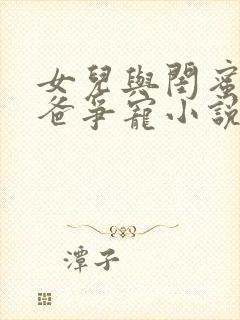 女兒與閨蜜
爸爭寵小說
潭子